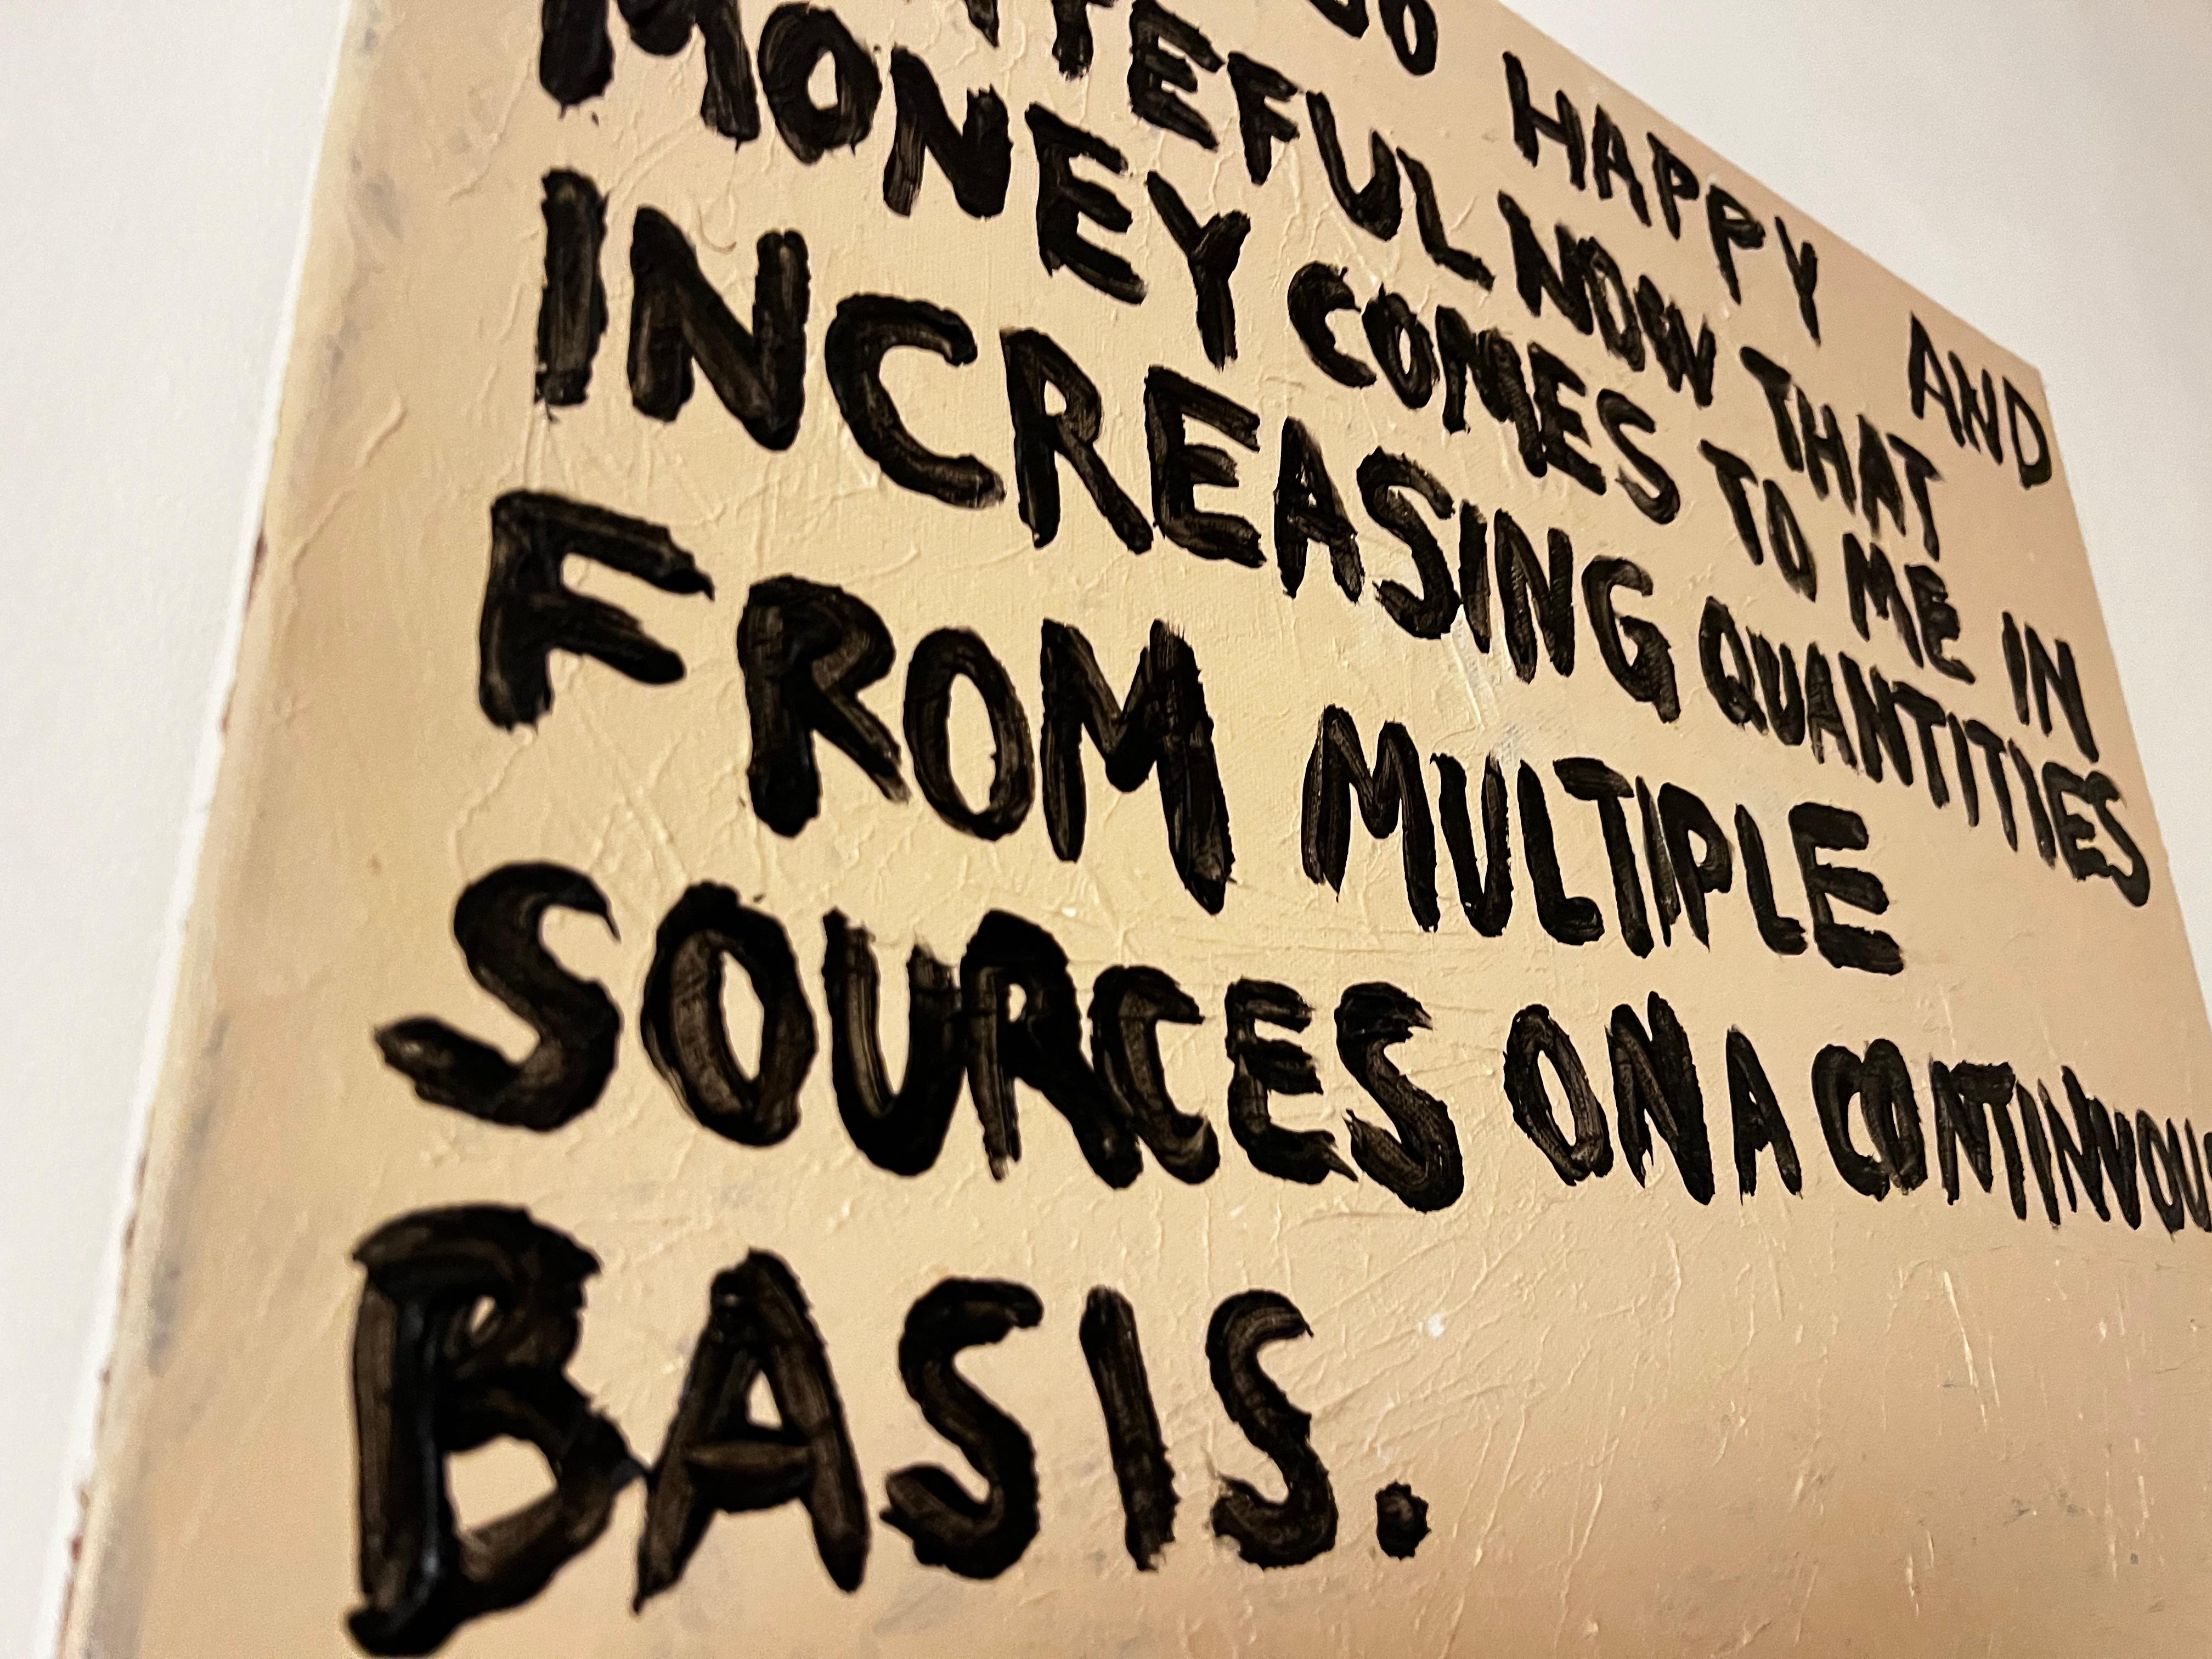 SO HAPPY AND
TEFUL NOW THAT
MONEY COMES TO ME IN
INCREASING QUANTITIES
FROM MULTIPLE
SOURCES ON A CONTINUOU
BASIS.